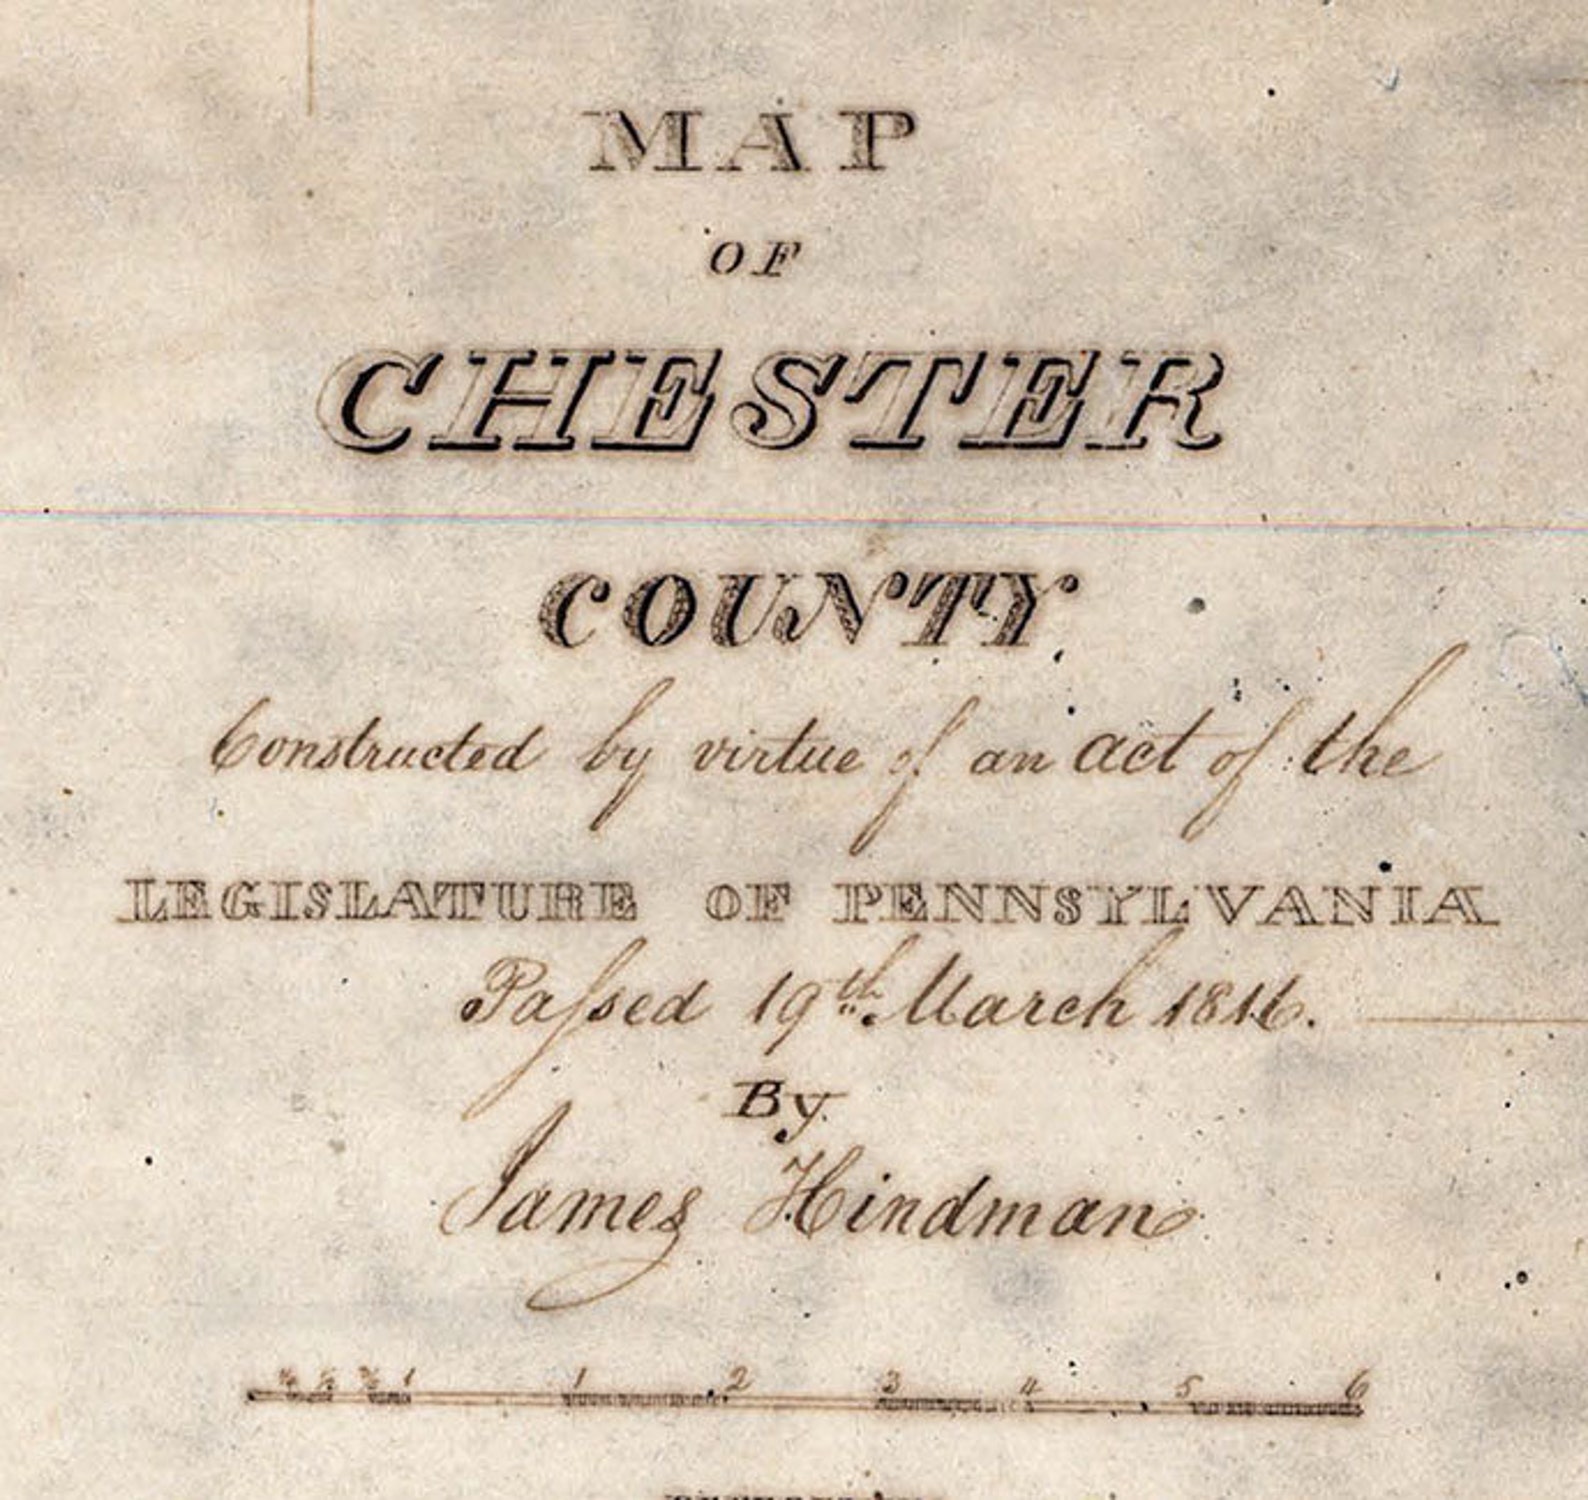 MAP
OF
CHESTER
COUNTY
Constructed by virtue of an act of the
LEGISLATURE OF PENNSYLVANIA
Paſsed 19th March 1816.
By
James Hindman
¼ ½ ¾ 1 1 2 3 4 5 6